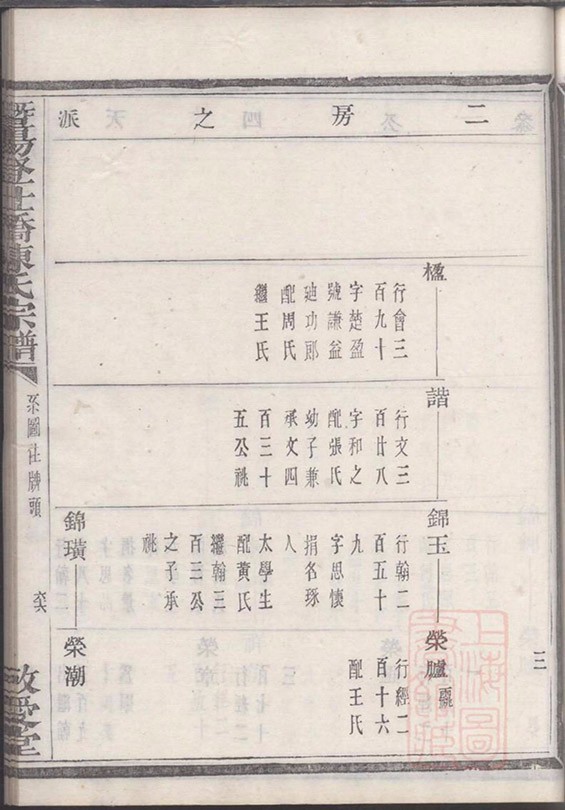 二房之派
楹
行會三
百九十
字楚盈
號謙益
迪功郎
配周氏
繼王氏
諧
行文三
百廿八
字和之
配張氏
幼子兼
承文四
百三十
五公祧
錦玉
行翰二
百五十
九
字思懷
捐名琢
人
太學生
配黄氏
繼翰三
百三公
之子承
祧
錦璜
榮臚
行經二
百十六
配王氏
榮潮
三
暨陽登仕橋陳氏宗譜
系圖社牌頭
敬愛堂
上海圖書館藏